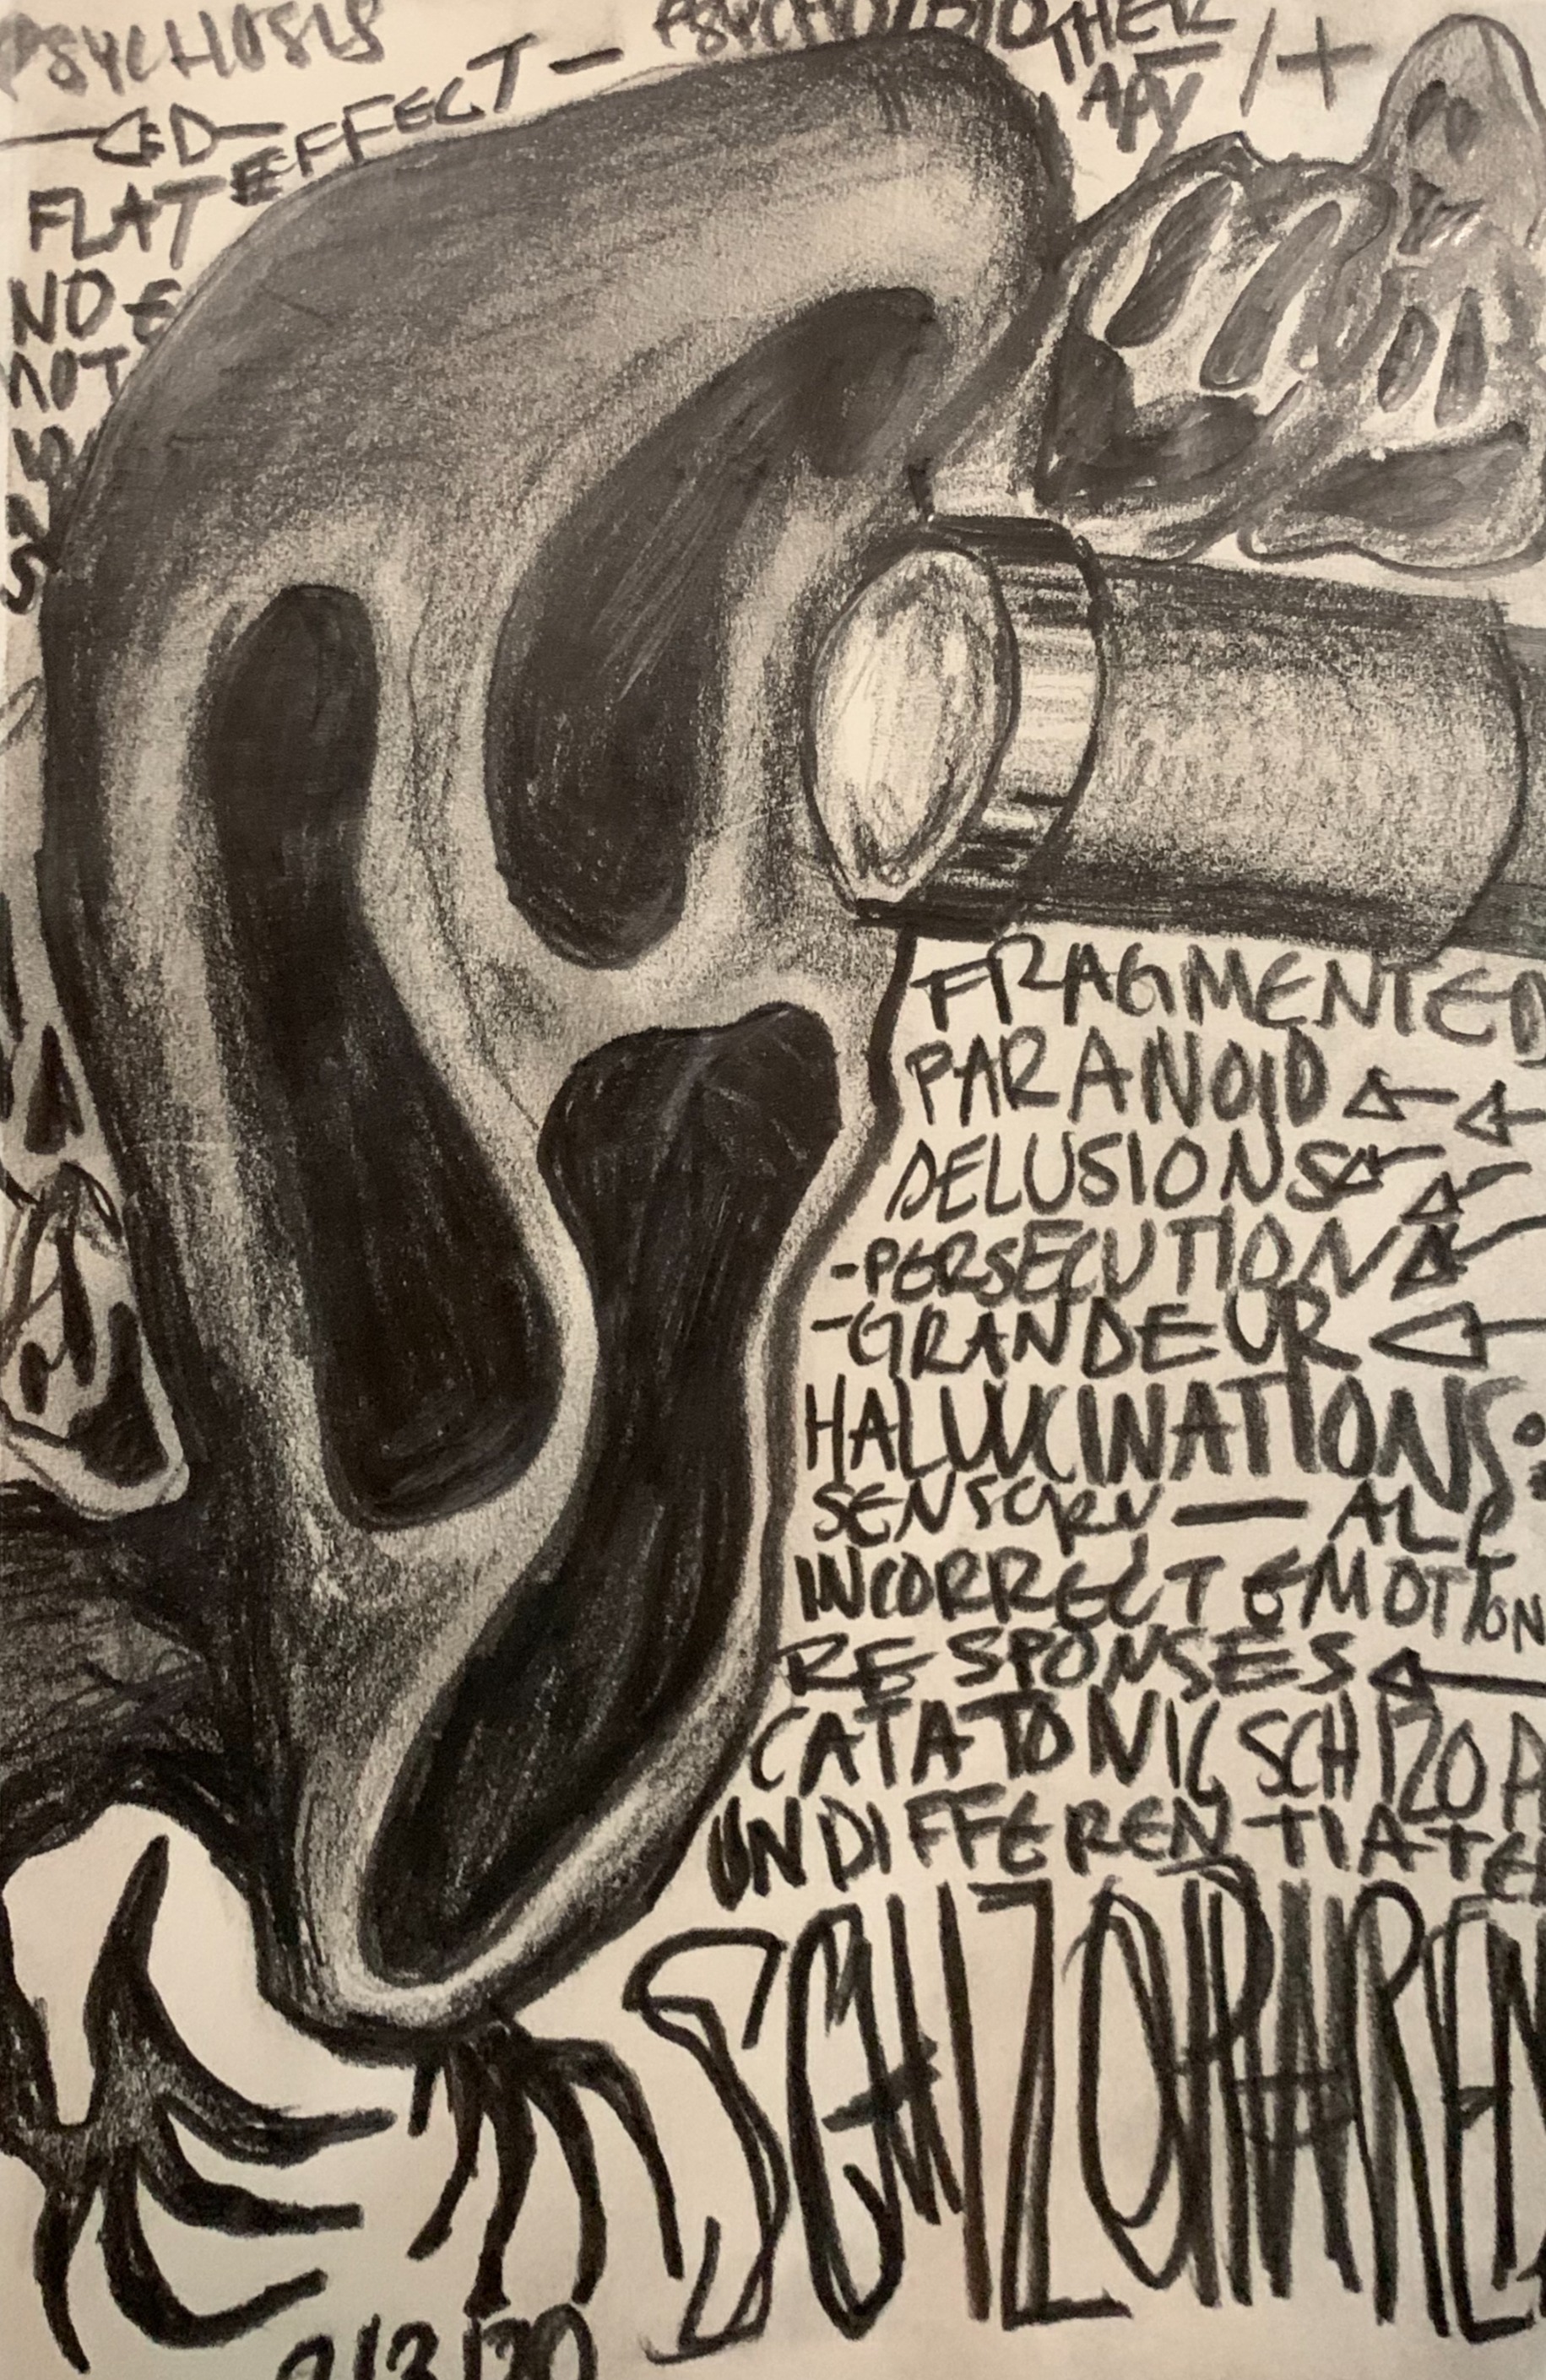 PSYCHOSIS
PSYCHOBIOTHER
APY /+
FLAT EFFECT —
NO E
NOT
FRAGMENTED
PARANOID
DELUSIONS
-PERSECUTION
-GRANDEUR
HALUUCINATIONS:
SENSORY — ALL
INCORRECT EMOTION
RESPONSES
CATATONIC SCHIZOP
UNDIFFERENTIATED
SCHIZOPHREN